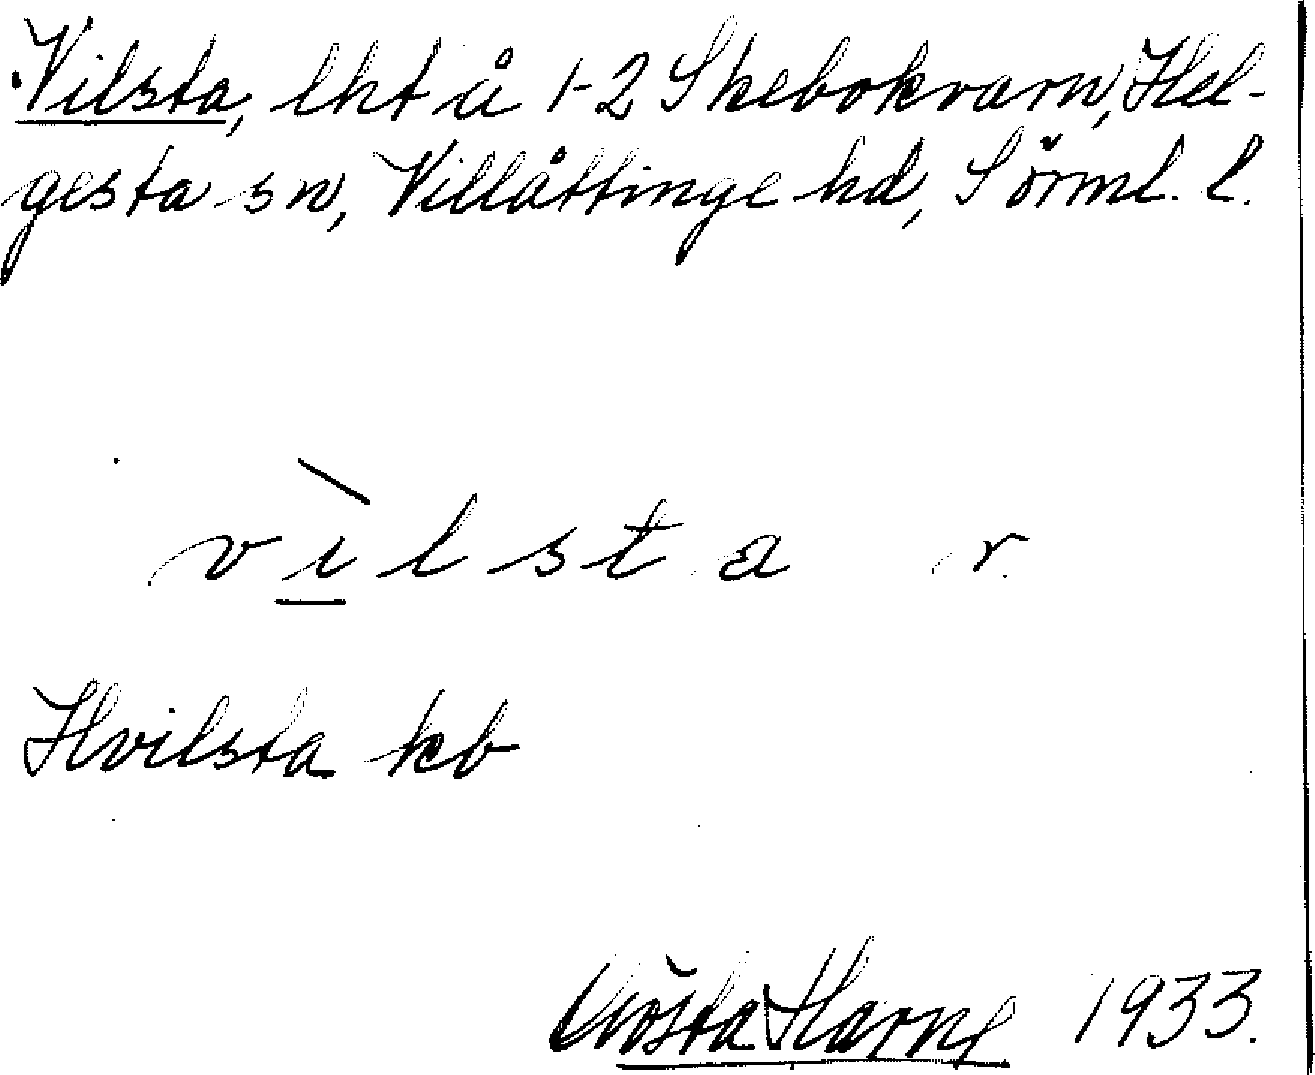 Vilsta, lht å 1-2 Skebokvarn, Hel-
gesta sn, Villåttinge hd, Sörml. l.
vìlsta r.
Hvilsta kb
Gösta Harne 1933.